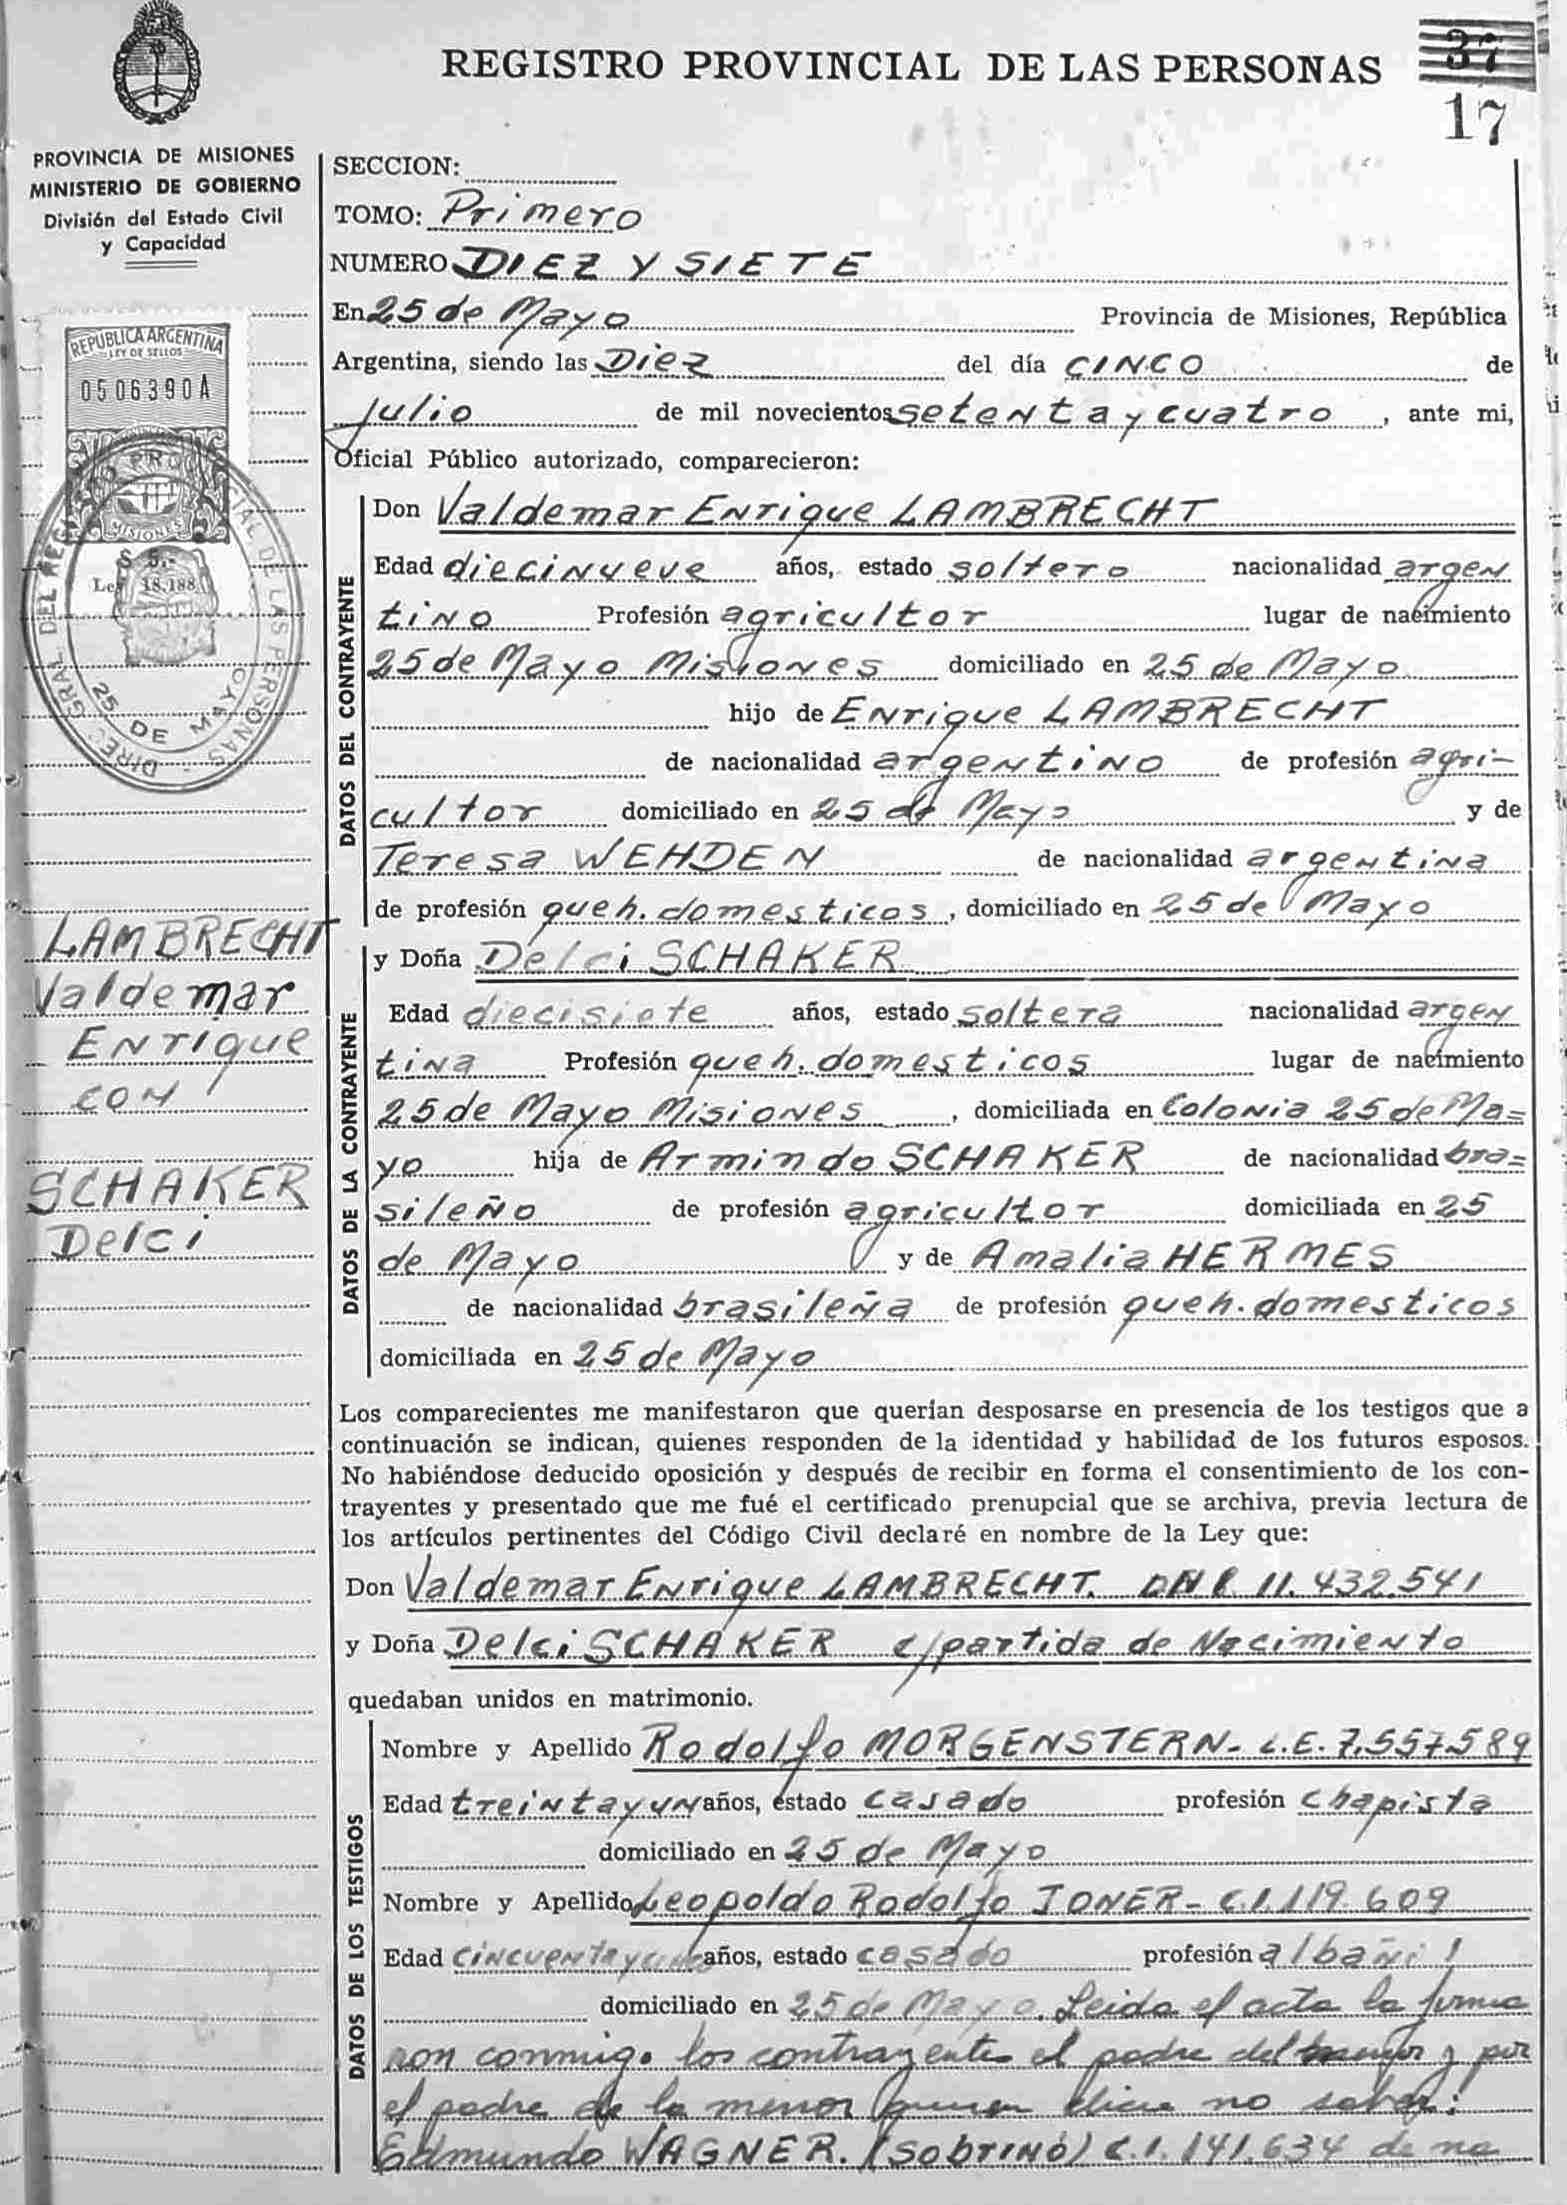 REGISTRO PROVINCIAL DE LAS PERSONAS
37
17
PROVINCIA DE MISIONES
MINISTERIO DE GOBIERNO
División del Estado Civil
y Capacidad
REPUBLICA ARGENTINA
LEY DE SELLOS
0506390A
MISIONES
$ 5.-
Ley 18.188
DIREC GRAL DEL REG PROVINCIAL DE LAS PERSONAS -
25 DE MAYO
LAMBRECHT
Valdemar
Enrique
con
SCHAKER
Delci
SECCION:
TOMO: Primero
NUMERO DIEZ Y SIETE
En 25 de Mayo Provincia de Misiones, República
Argentina, siendo las Diez del día CINCO de
Julio de mil novecientos setenta y cuatro, ante mi,
Oficial Público autorizado, comparecieron:
DATOS DEL CONTRAYENTE
Don Valdemar Enrique LAMBRECHT
Edad diecinueve años, estado soltero nacionalidad argen
tino Profesión agricultor lugar de nacimiento
25 de Mayo Misiones domiciliado en 25 de Mayo
hijo de Enrique LAMBRECHT
de nacionalidad argentino de profesión agri-
cultor domiciliado en 25 de Mayo y de
Teresa WEHDEN de nacionalidad argentina
de profesión queh. domesticos, domiciliado en 25 de Mayo
DATOS DE LA CONTRAYENTE
y Doña Delci SCHAKER
Edad diecisiete años, estado soltera nacionalidad argen
tina Profesión queh. domesticos lugar de nacimiento
25 de Mayo Misiones, domiciliada en Colonia 25 de Ma=
yo hija de Armindo SCHAKER de nacionalidad bra=
sileño de profesión agricultor domiciliada en 25
de Mayo y de Amalia HERMES
de nacionalidad brasileña de profesión queh. domesticos
domiciliada en 25 de Mayo
Los comparecientes me manifestaron que querían desposarse en presencia de los testigos que a
continuación se indican, quienes responden de la identidad y habilidad de los futuros esposos.
No habiéndose deducido oposición y después de recibir en forma el consentimiento de los con-
trayentes y presentado que me fué el certificado prenupcial que se archiva, previa lectura de
los artículos pertinentes del Código Civil declaré en nombre de la Ley que:
Don Valdemar Enrique LAMBRECHT. DNI 11.432.541
y Doña Delci SCHAKER c/partida de Nacimiento
quedaban unidos en matrimonio.
DATOS DE LOS TESTIGOS
Nombre y Apellido Rodolfo MORGENSTERN- L.E. 7.557.589
Edad treinta y un años, estado casado profesión chapista
domiciliado en 25 de Mayo
Nombre y Apellido Leopoldo Rodolfo JONER- C.I. 119.609
Edad cincuenta y años, estado casado profesión albañil
domiciliado en 25 de Mayo. Leida el acta la firma
ron conmigo los contrayentes el padre del y por
el padre de la menor quien dice no saber:
Edmundo WAGNER. (sobrino) C.I. 141.634 de na